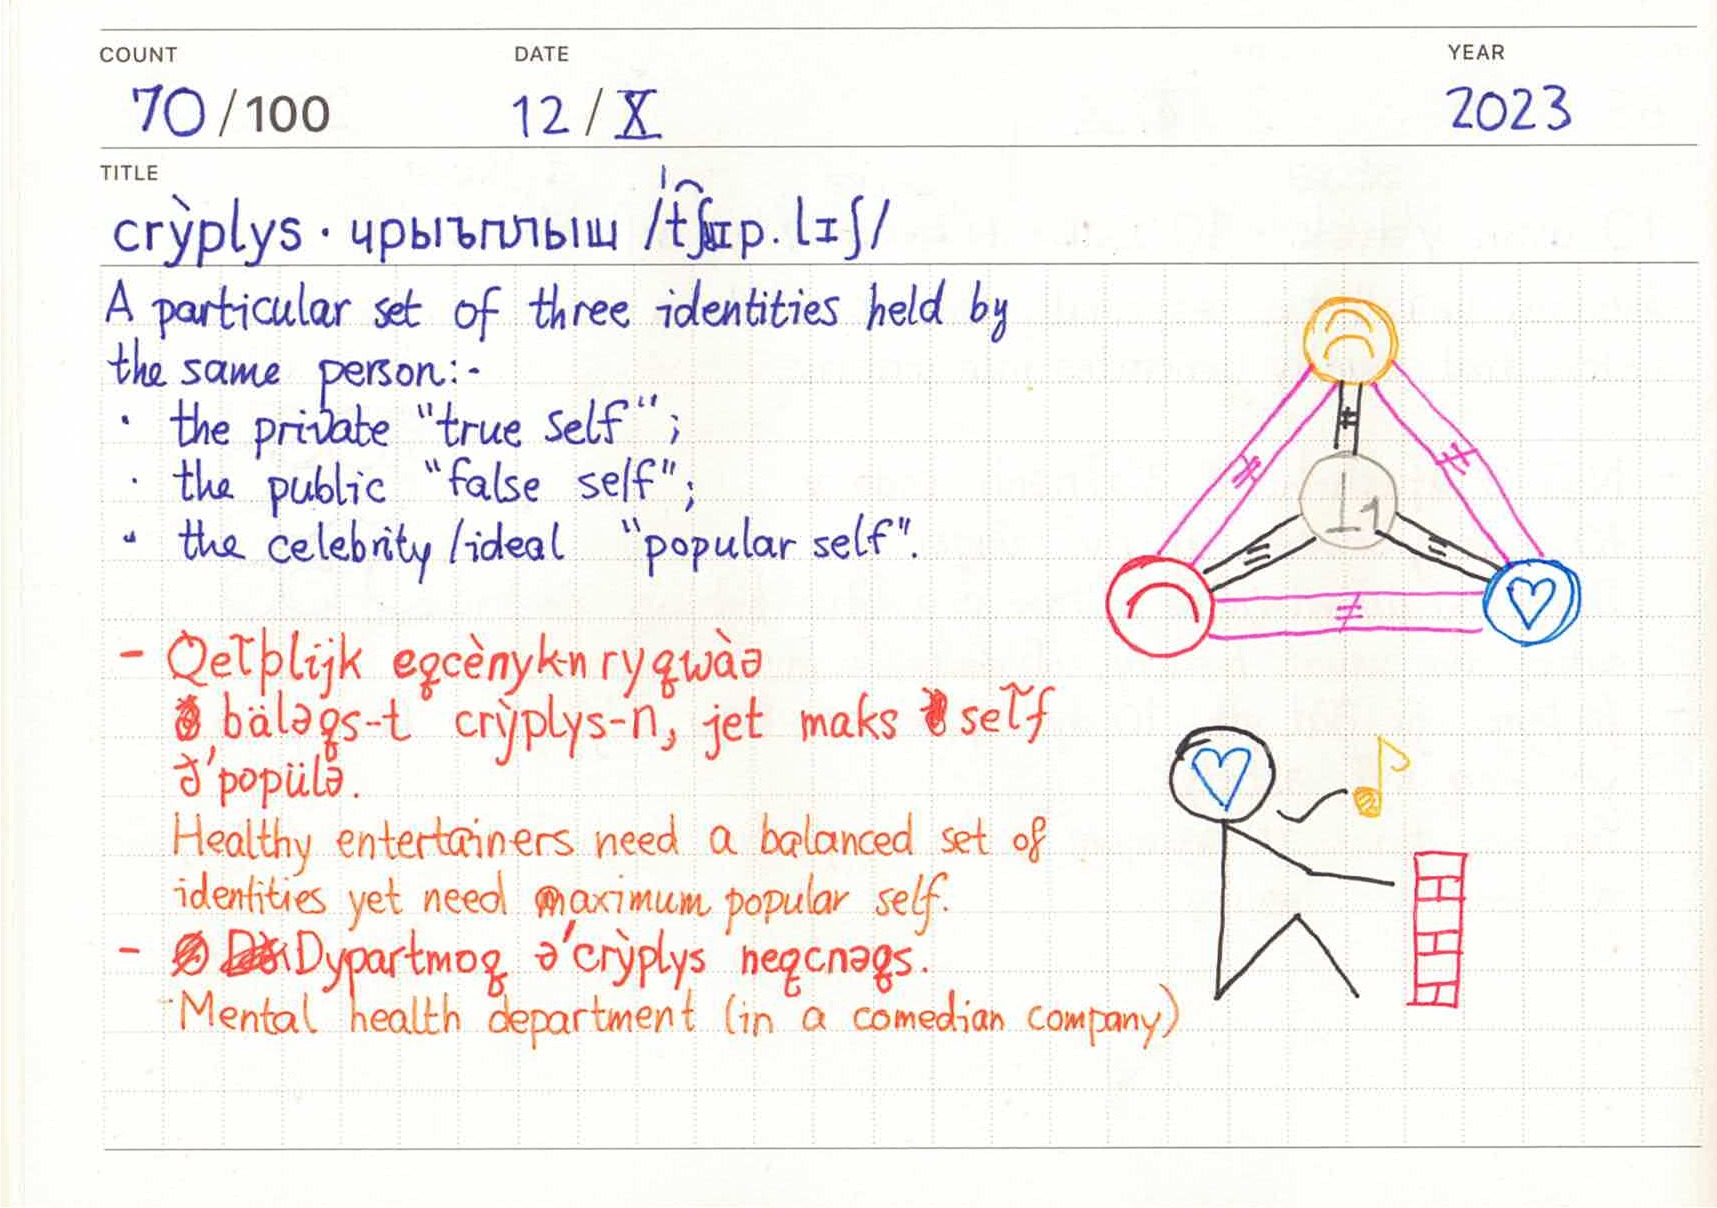 COUNT DATE YEAR
70/100 12/X 2023
TITLE
crỳplys · чрыъплыш /ˈt͡ʃɪp.lɪʃ/
A particular set of three identities held by
the same person:-
· the private "true self";
· the public "false self";
· the celebrity/ideal "popular self".
1
- eqcènyk-n ryqwàə
bäləqs-t crỳplys-n, jet maks
popülə.
Healthy entertainers need a balanced set of
identities yet need maximum popular self.
- Dypartmoq ə'crỳplys neqcnəqs.
Mental health department (in a comedian company)